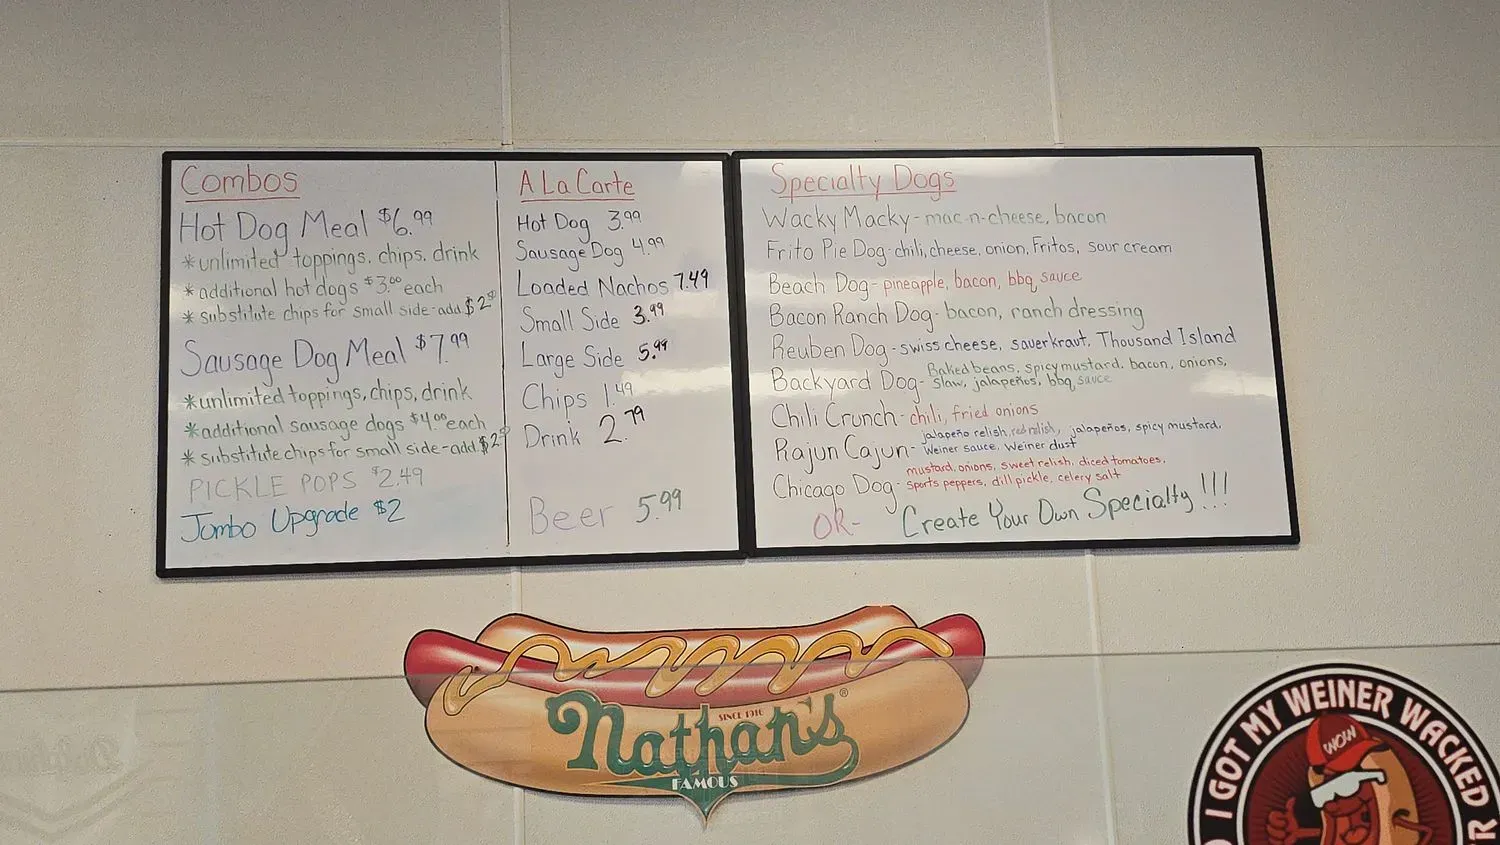 Combos
Hot Dog Meal $6.99
*unlimited toppings, chips, drink
*additional hot dogs $3.00 each
*substitute chips for small side-add $2
Sausage Dog Meal $7.99
*unlimited toppings, chips, drink
*additional sausage dogs $4.00 each
*substitute chips for small side-add $2
PICKLE POPS $2.49
Jumbo Upgrade $2
A La Carte
Hot Dog 3.99
Sausage Dog 4.99
Loaded Nachos 7.49
Small Side 3.99
Large Side 5.99
Chips 1.49
Drink 2.79
Beer 5.99
Specialty Dogs
Wacky Macky- mac-n-cheese, bacon
Frito Pie Dog-chili, cheese, onion, Fritos, sour cream
Beach Dog- pineapple, bacon, bbq sauce
Bacon Ranch Dog- bacon, ranch dressing
Reuben Dog- swiss cheese, sauerkraut, Thousand Island
Backyard Dog- Baked beans, spicy mustard, bacon, onions,
slaw, jalapeños, bbq sauce
Chili Crunch- chili, fried onions
Rajun Cajun- jalapeño relish, red relish, jalapeños, spicy mustard,
Weiner sauce, Weiner dust
Chicago Dog- mustard, onions, sweet relish, diced tomatoes,
sports peppers, dill pickle, celery salt
OR- Create Your Own Specialty!!!
SINCE 1916
Nathan's®
FAMOUS
I GOT MY WEINER WACKED
WOW